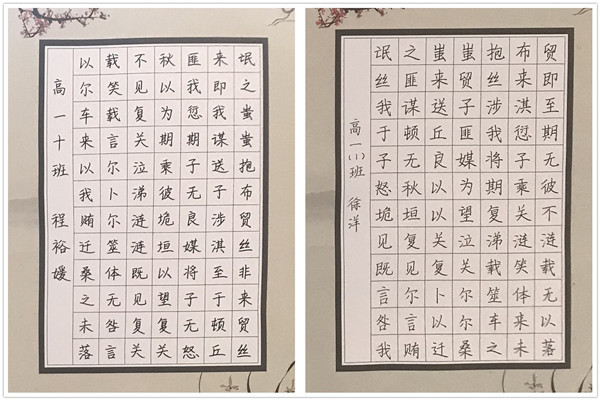 氓之蚩蚩抱布贸丝非来贸丝
来即我谋送子涉淇至于顿丘
匪我愆期子无良媒将子无怒
秋以为期乘彼垝垣以望复关
不见复关泣涕涟涟既见复关
载笑载言尔卜尔筮体无咎言
以尔车来以我贿迁桑之未落
高一十班 程裕媛
氓之蚩蚩抱布贸
丝匪来贸丝来即
我谋送子涉淇至
于顿丘匪我愆期
子无良媒将子无
怒秋以为期乘彼
垝垣以望复关不
见复关泣涕涟涟
既见复关载笑载
言尔卜尔筮体无
咎言以尔车来以
我贿迁桑之未落
高一(1)班 徐洋